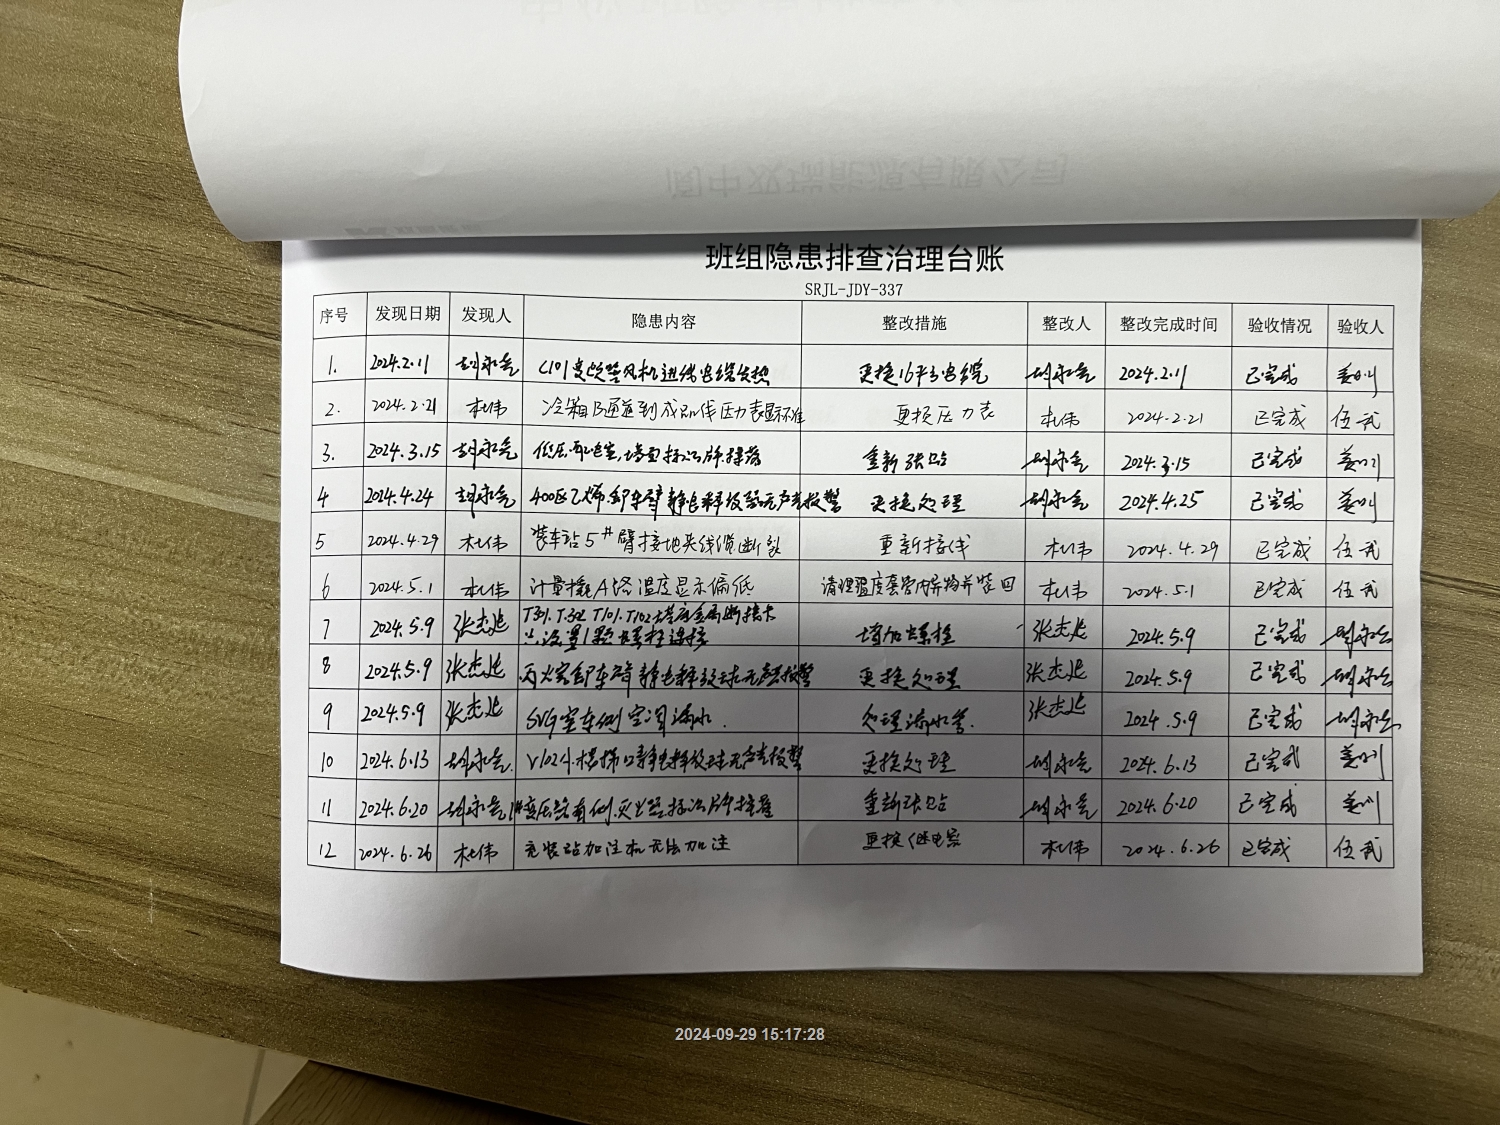 班组隐患排查治理台账
SRJL-JDY-337
序号 发现日期 发现人 隐患内容 整改措施 整改人 整改完成时间 验收情况 验收人
1. 2024.2.11 C101 风机进线电缆发热 更换16平方电缆 2024.2.11 已完成
2. 2024.2.21 杜伟 冷箱B通道到成品线压力表显示不准 更换压力表 杜伟 2024.2.21 已完成 伍武
3. 2024.3.15 低压配电室,墙面标识牌掉落 重新张贴 2024.3.15 已完成
4 2024.4.24 400区乙烯卸车臂静电释放器无声光报警 更换处理 2024.4.25 已完成
5 2024.4.29 杜伟 装车站5#臂接地夹线缆断裂 重新接线 杜伟 2024.4.29 已完成 伍武
6 2024.5.1 杜伟 计量撬A路温度显示偏低 清理温度套管内异物并装回 杜伟 2024.5.1 已完成 伍武
7 2024.5.9 张杰 T301.T302 T101.T102塔底金属
只设置1颗螺栓连接 增加螺栓 张杰 2024.5.9 已完成
8 2024.5.9 张杰 丙 卸车臂静电释放球无声光报警 更换处理 张杰 2024.5.9 已完成
9 2024.5.9 张杰 SVG室 侧空调漏水. 处理漏水管. 张杰 2024.5.9 已完成
10 2024.6.13 V102 梯口静电释放球无声光报警 更换处理 2024.6.13 已完成
11 2024.6.20 1#变压器 侧灭火器标识牌掉落 重新张贴 2024.6.20 已完成
12 2024.6.26 杜伟 充装站加注机无法加注 更换继电器 杜伟 2024.6.26 已完成 伍武
2024-09-29 15:17:28